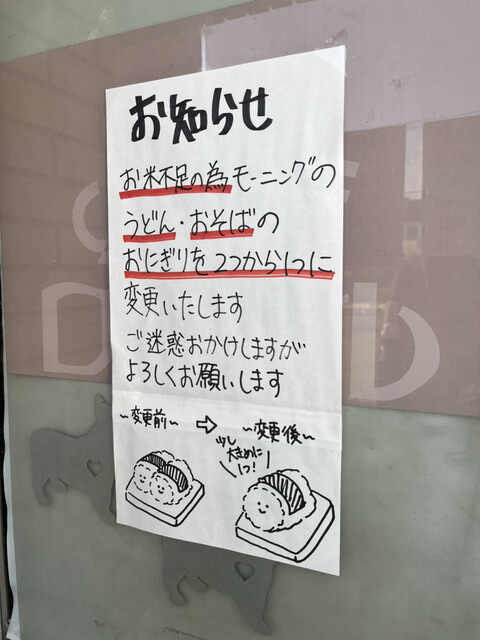 お知らせ
お米不足の為モーニングの
うどん・おそばの
おにぎりを2つから1つに
変更いたします
ご迷惑おかけしますが
よろしくお願いします
~変更前~ ⇨ ~変更後~
少し
大きめに
1つ!